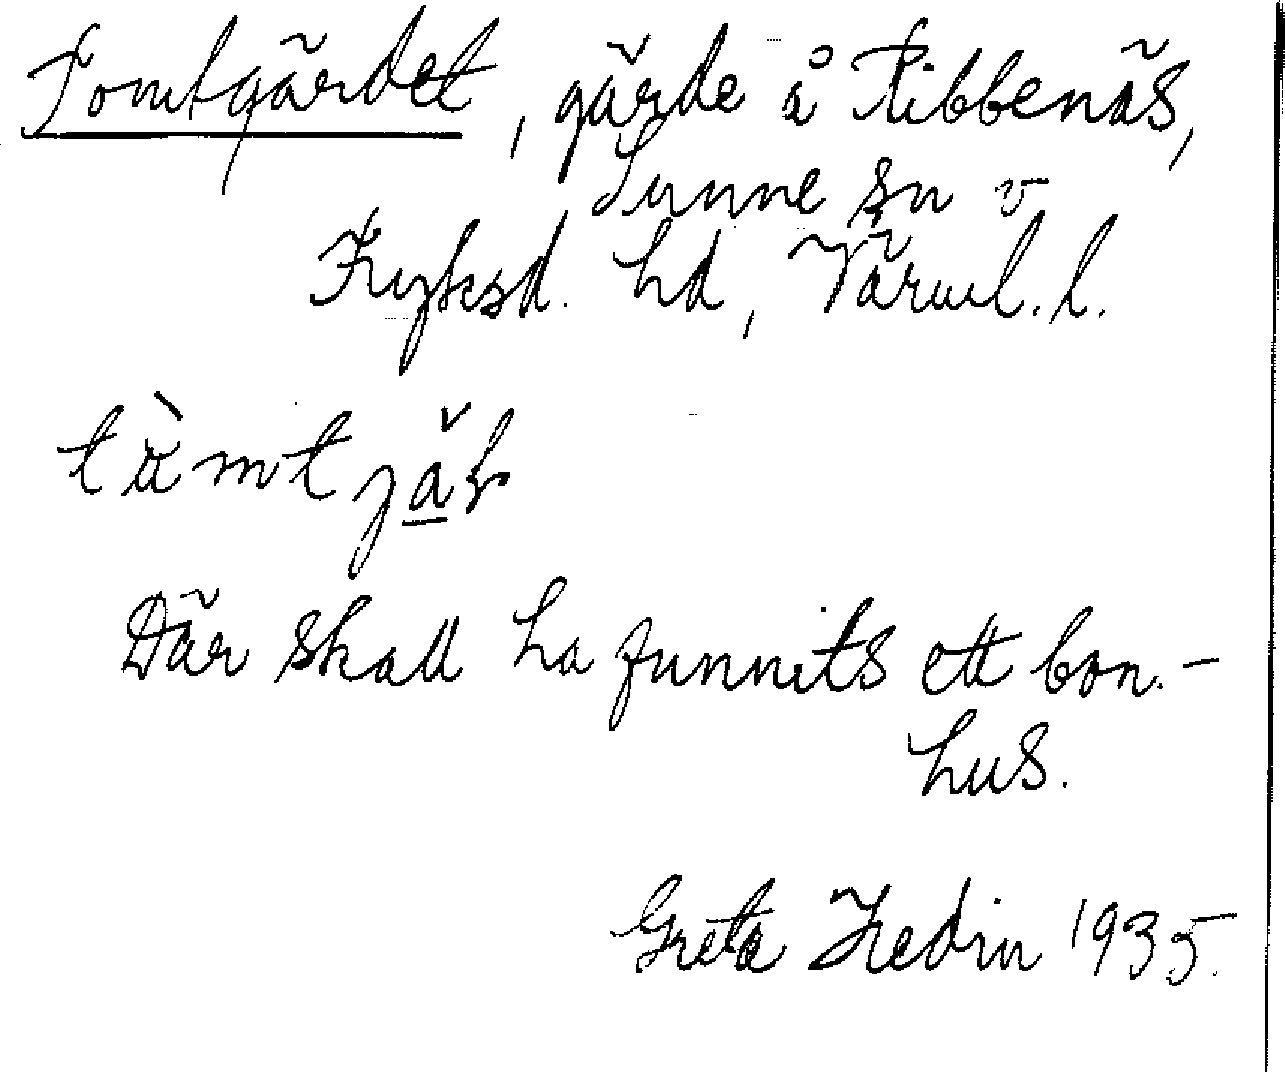 Tomtgärdet, gärde å Ribbenäs,
Sunne sn v
Fryksd. hd, Värml. l.
tòmtjäƀ
Där skall ha funnits ett bon.-
hus.
Greta Hedin 1935.